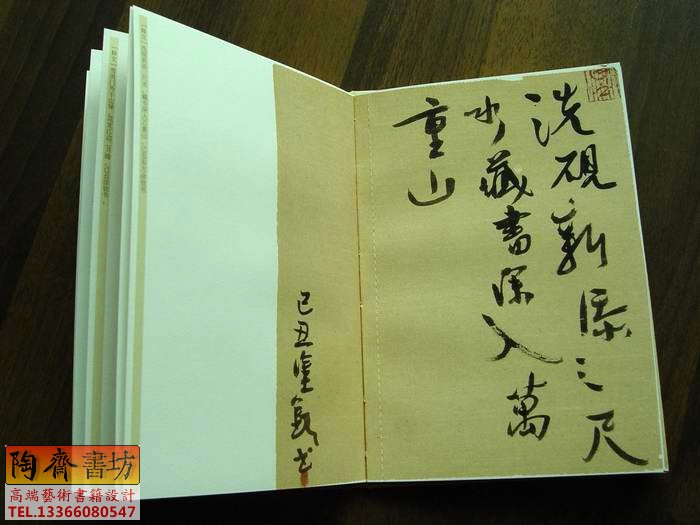 洗硯新添三尺
水藏書深入萬
重山
己丑
陶齋書坊
高端藝術書籍設計
TEL.13366080547